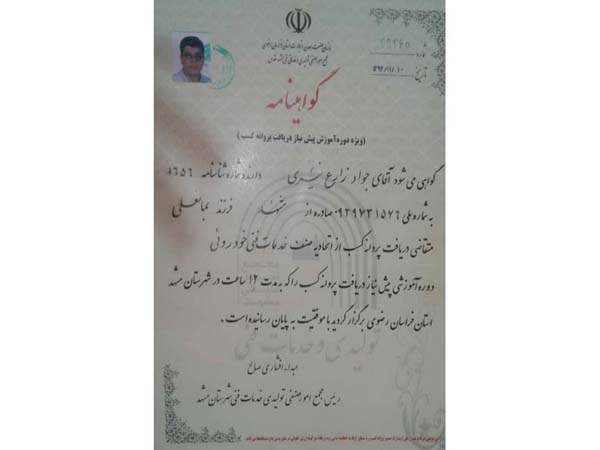 سازمان صنعت، معدن و تجارت استان خراسان رضوی
شماره
تاریخ ۱۳۹۲/۱۱/۱۰
گواهینامه
(ویژه دوره آموزش پیش نیاز دریافت پروانه کسب)
گواهی می شود آقای جواد زارع دارنده شماره شناسنامه ۱۶۵۶
به شماره ملی ۰۹۲۹۷۳۱۵۷۶ صادره از مشهد فرزند
متقاضی دریافت پروانه کسب از اتحادیه صنف خدمات فنی خودروئی
دوره آموزشی پیش نیاز دریافت پروانه کسب را که به مدت ۱۲ ساعت در شهرستان مشهد
استان خراسان رضوی برگزار گردید با موفقیت به پایان رسانیده است.
تولیدی و خدمات فنی
عبدا... افشاری صالح
رئیس مجمع امور صنفی تولیدی خدمات فنی شهرستان مشهد